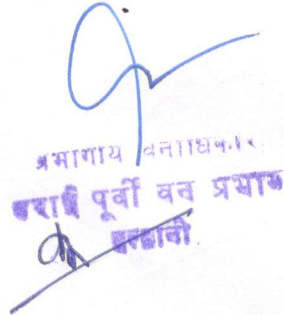 प्रभागीय वनाधिकारी
तराई पूर्वी वन प्रभाग
हल्द्वानी